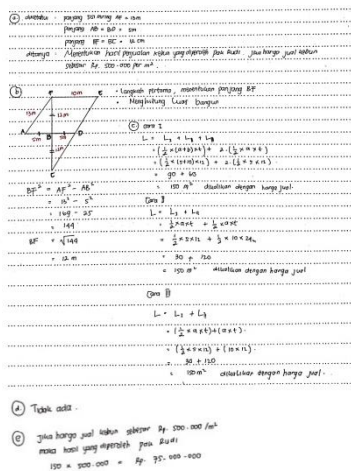 (a) diketahui : panjang sisi miring AF = 13m
panjang AB = BD = 5m
panjang EF = BC = 10 cm
ditanya : Menentukan hasil penjualan kebun yang diperoleh pak Rudi, jika harga jual kebun
sebesar Rp. 500.000 per m².
(b)
F 10m E
13m 12m
A 5m B 5m D
12m
C
• Langkah pertama, menentukan panjang BF
• Menghitung Luas bangun
BF² = AF² - AB²
= 13² - 5²
= 169 - 25
= 144
BF = √144
= 12 m
(c) cara I
L = L₁ + L₂ + L₃
= (½ × (a+b) × t) + 2 . (½ × a × t)
= (½ × (5+10) × 12) + 2 . (½ × 5 × 12)
= 90 + 60
= 150 m² dikalikan dengan harga jual.
Cara II
L = L₁ + L₂
= ½ × a × t + ½ × a × t
= ½ × 5 × 12 + ½ × 10 × 24
= 30 + 120
= 150 m² dikalikan dengan harga jual
Cara III
L = L₁ + L₂
= (½ × a × t) + (a × t)
= (½ × 5 × 12) + (10 × 12)
= 30 + 120
= 150m² dikalikan dengan harga jual.
(d) Tidak ada.
(e) Jika harga jual kebun sebesar Rp. 500.000 /m²
maka hasil yang diperoleh pak Rudi
150 × 500.000 = Rp. 75.000.000